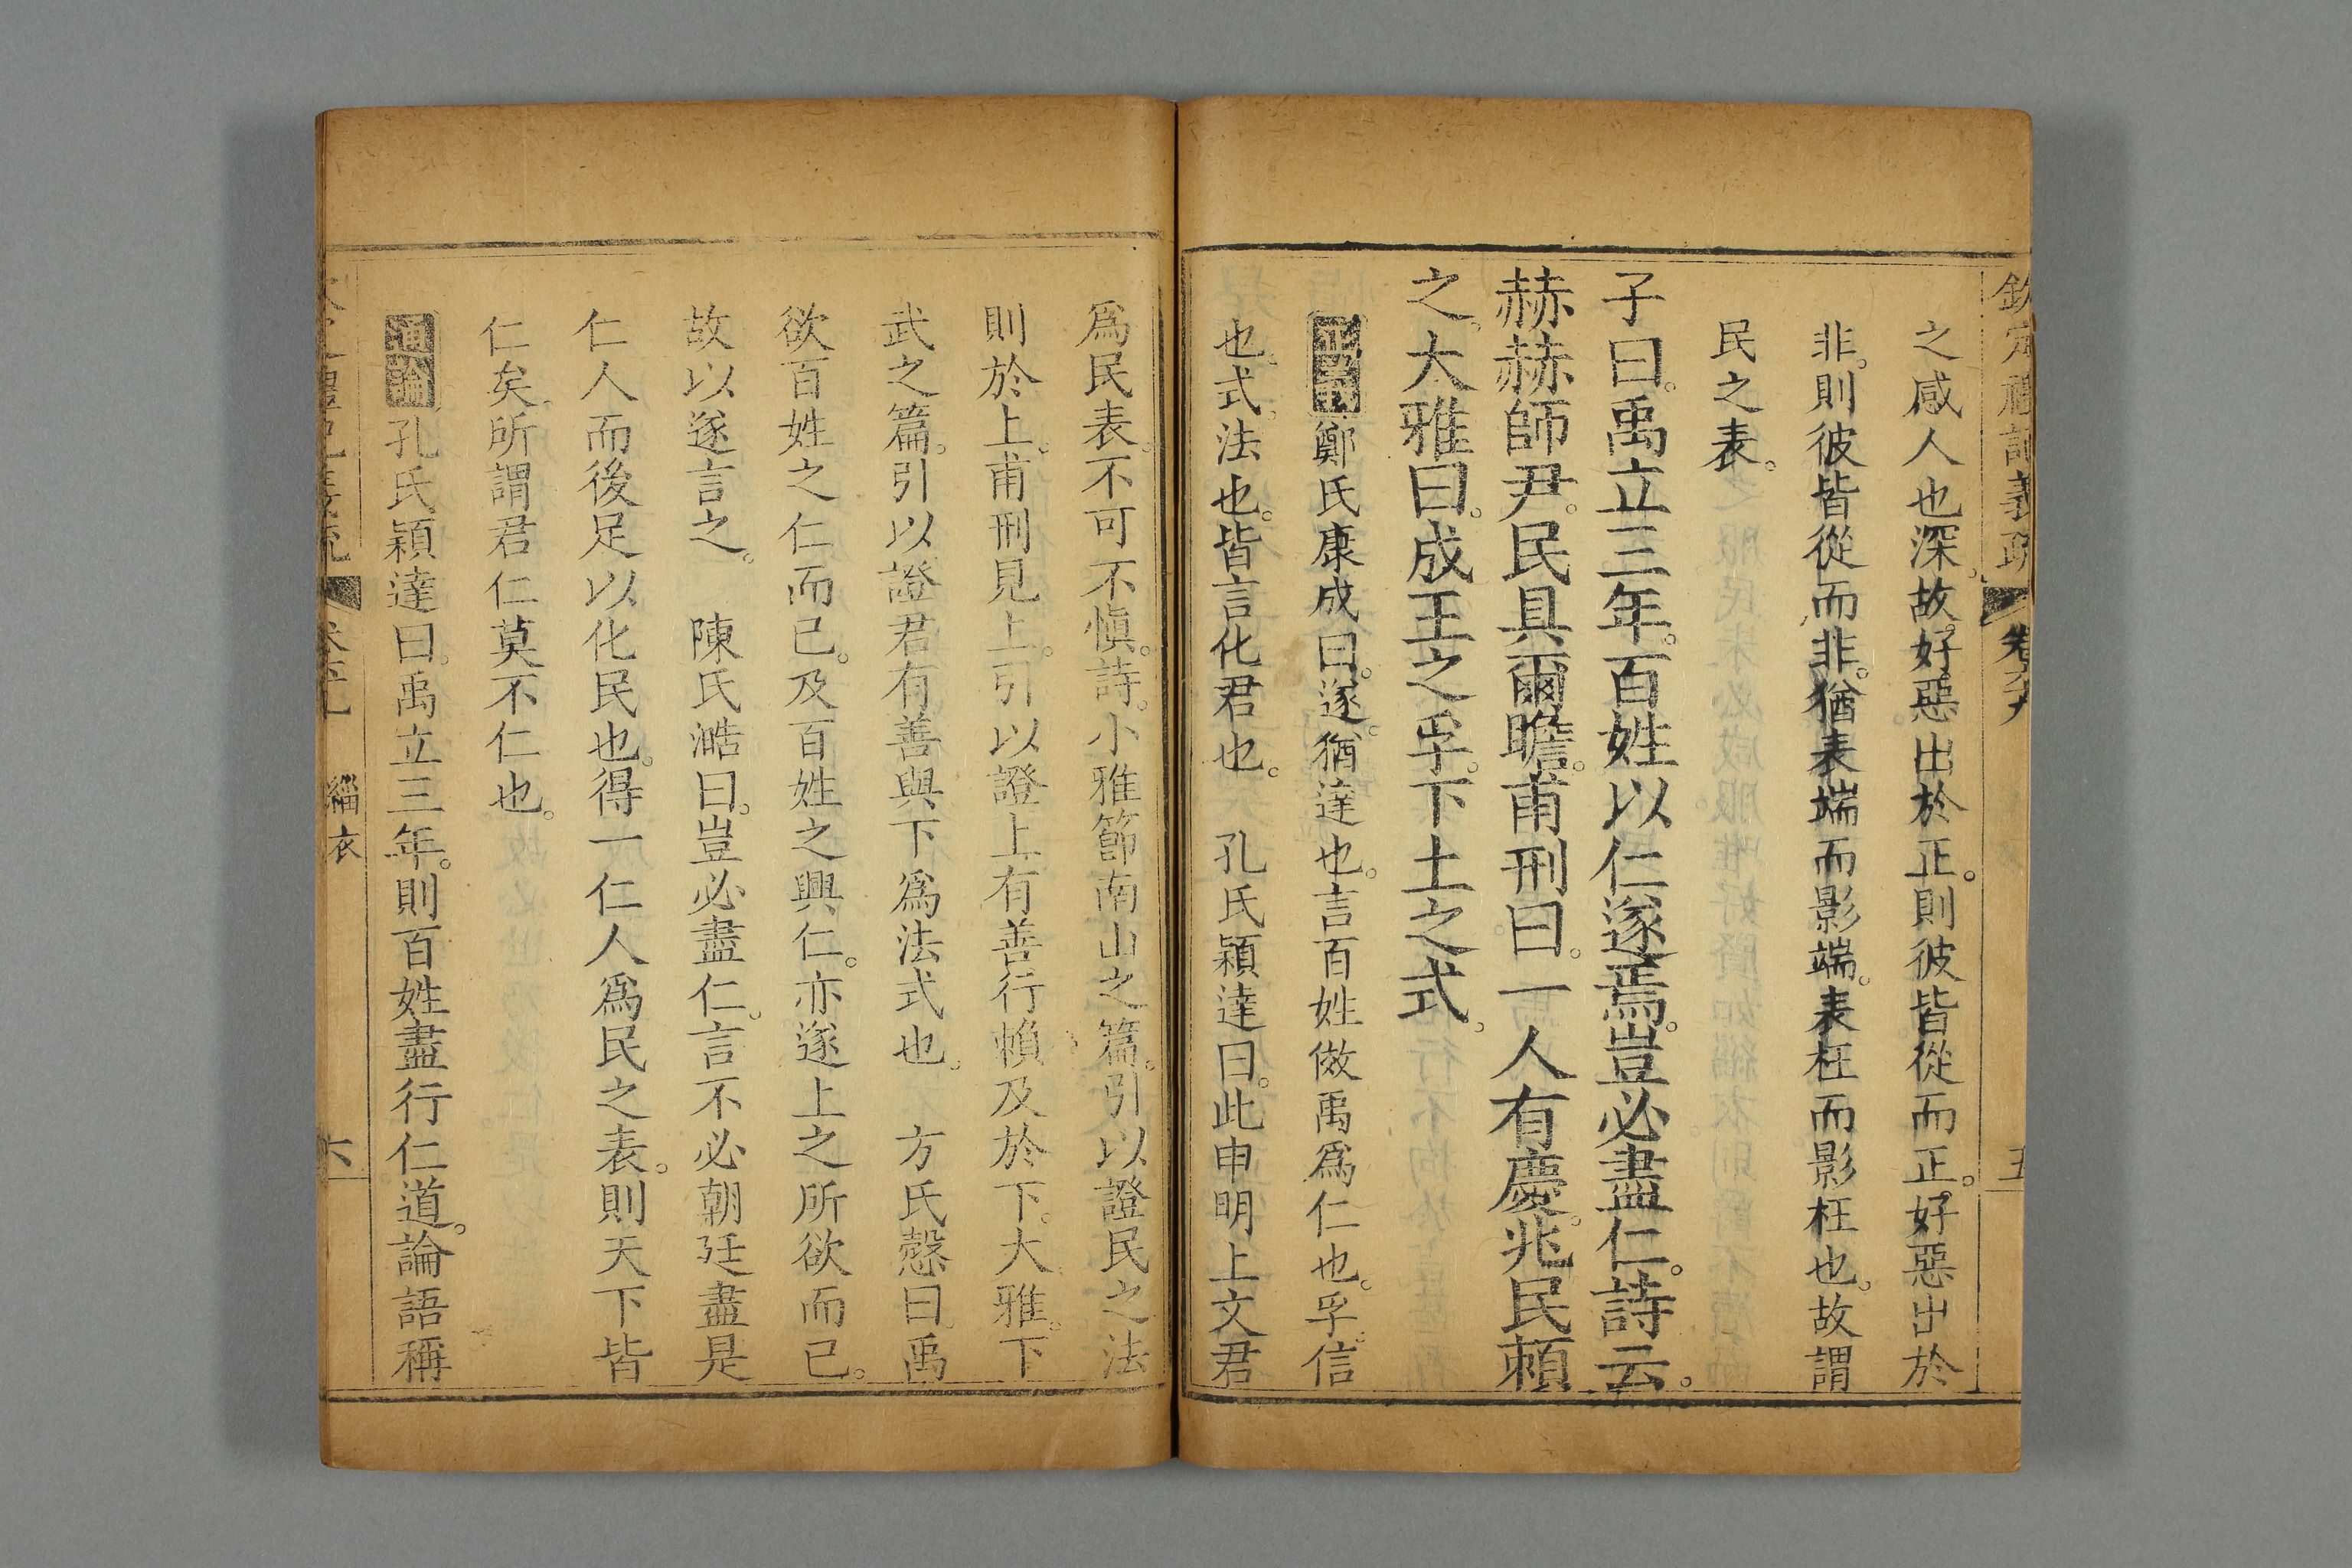 欽定禮記義疏 卷六十九 五
之感人也深。故好惡出於正。則彼皆從而正。好惡出於
非。則彼皆從而非。猶表端而影端。表枉而影枉也。故謂
民之表。
子曰。禹立三年。百姓以仁遂焉。豈必盡仁。詩云。
赫赫師尹。民具爾瞻。甫刑曰。一人有慶。兆民賴
之。大雅曰。成王之孚。下土之式。
正義鄭氏康成曰。遂。猶達也。言百姓傚禹爲仁也。孚。信
也。式。法也。皆言化君也。 孔氏穎達曰。此申明上文君
爲民表。不可不愼。詩。小雅節南山之篇。引以證民之法
則於上。甫刑見上。引以證上有善行。賴及於下。大雅。下
武之篇。引以證君有善與下爲法式也。 方氏慤曰。禹
欲百姓之仁而已。及百姓之興仁。亦遂上之所欲而已。
故以遂言之。 陳氏澔曰。豈必盡仁。言不必朝廷盡是
仁人而後足以化民也。得一仁人爲民之表。則天下皆
仁矣。所謂君仁莫不仁也。
通論孔氏穎達曰。禹立三年。則百姓盡行仁道。論語稱
緇衣 六